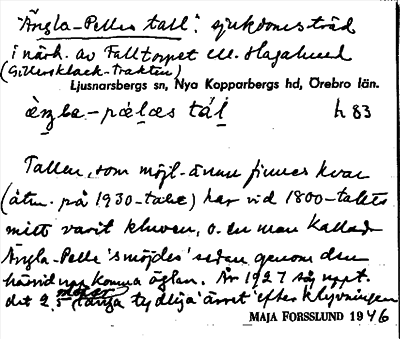 "Ängla-Pelles tall": sjukdomsträd
i närh. av Falltorpet ell. Hagalund
(Gillersklack-Trakten)
Ljusnarsbergs sn, Nya Kopparbergs hd, Örebro län.
h 83
Tallen, som möjl. ännu finnes kvar
(åtm. på 1930-talet) har vid 1800-talets
mitt varit kluven, o. en man kallad
Ängla-Pelle 'smöjdes' sedan genom den
härvid uppkomna öglan. År 1927 såg uppt.
det 2,5 meter långa tydliga ärret efter klyvningen
MAJA FORSSLUND 1946